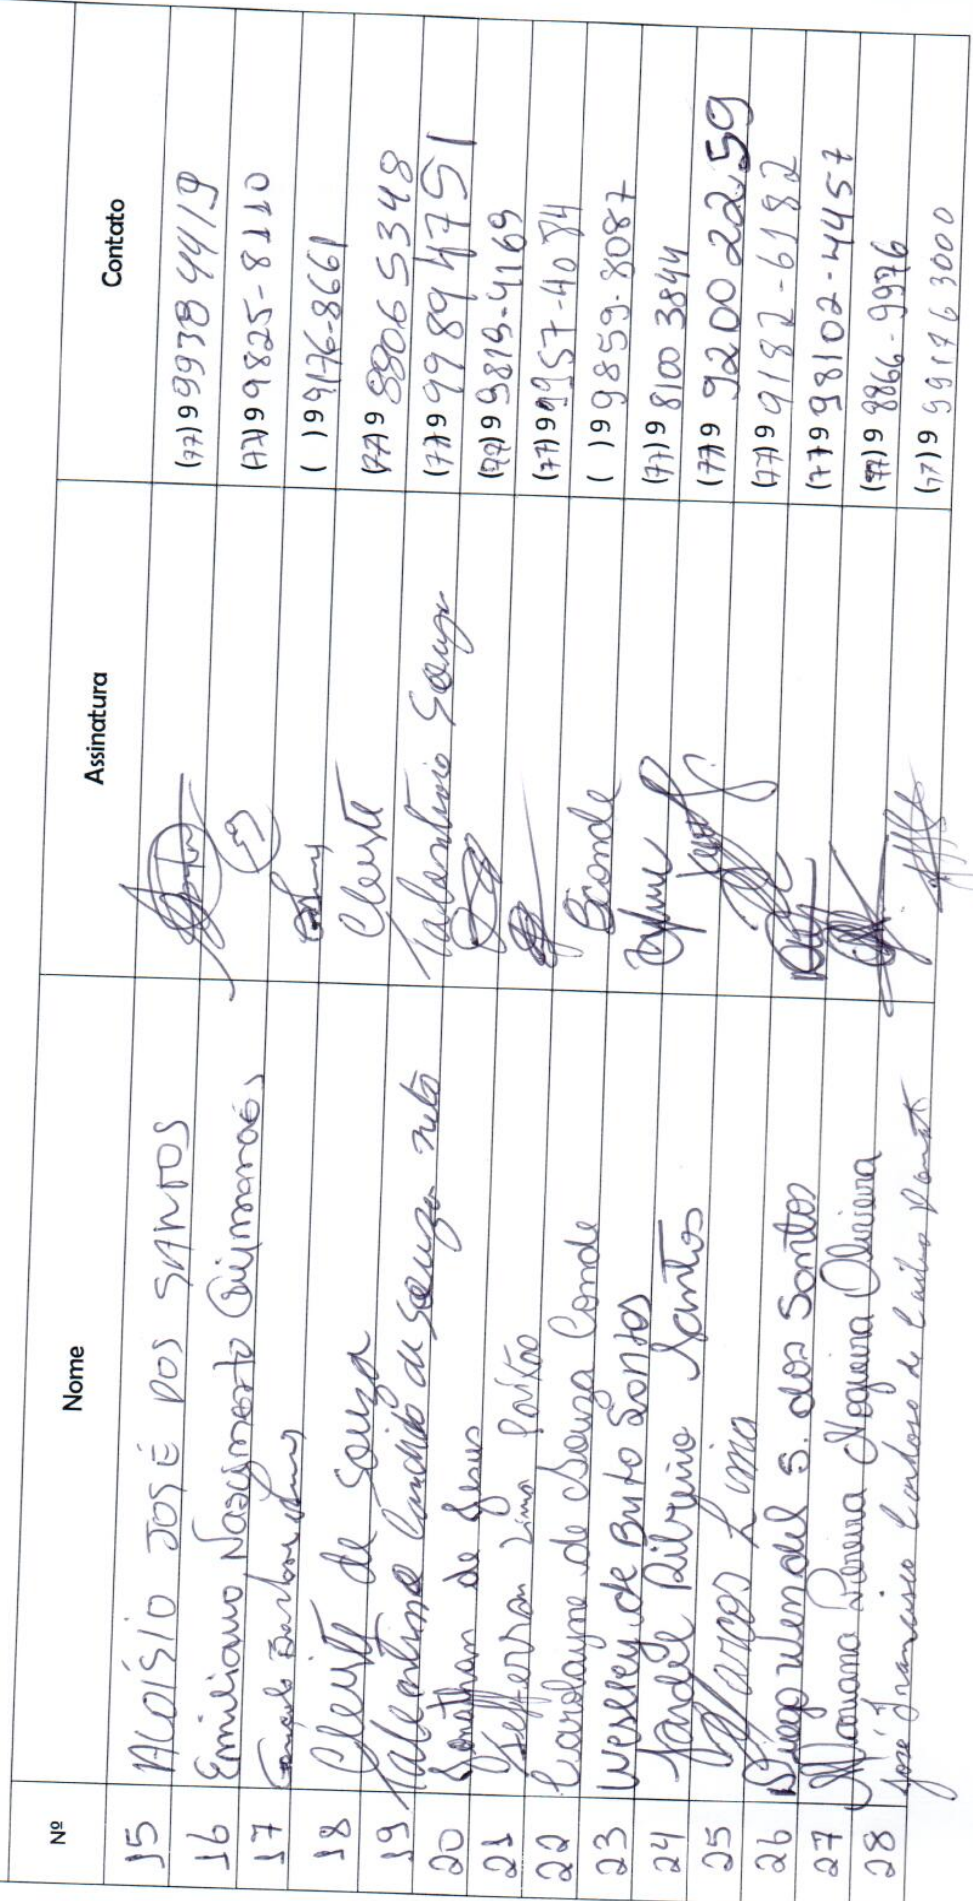 Nº Nome Assinatura Contato
15 ALOÍSIO JOSÉ DOS SANTOS (77) 9 99384419
16 Emiliano Nascimento Guimarães (77) 9 9825-8110
17 ( ) 9 9176-8661
18 Cleuste de Souza Cleuste (77) 9 88065348
19 Valentino Candido de Souza neto Souza (77) 9 99894751
20 Jonathan de Jesus (77) 9 9819-4169
21 Jefferson Lima (77) 9 9957-4084
22 Carolayne de Souza Conde Bconde ( ) 9 9859-8087
23 Wesley de Brito Santos (77) 9 81003844
24 Ribeiro Santos (77) 9 92002259
25 Marcos Lima (77) 9 9182-6182
26 Diego Wendel S. dos Santos (77) 9 98102-4457
27 Mariana Pereira Nogueira Oliveira (77) 9 8866-9976
28 José Francisco Cardoso de Castro (77) 9 99176 3000